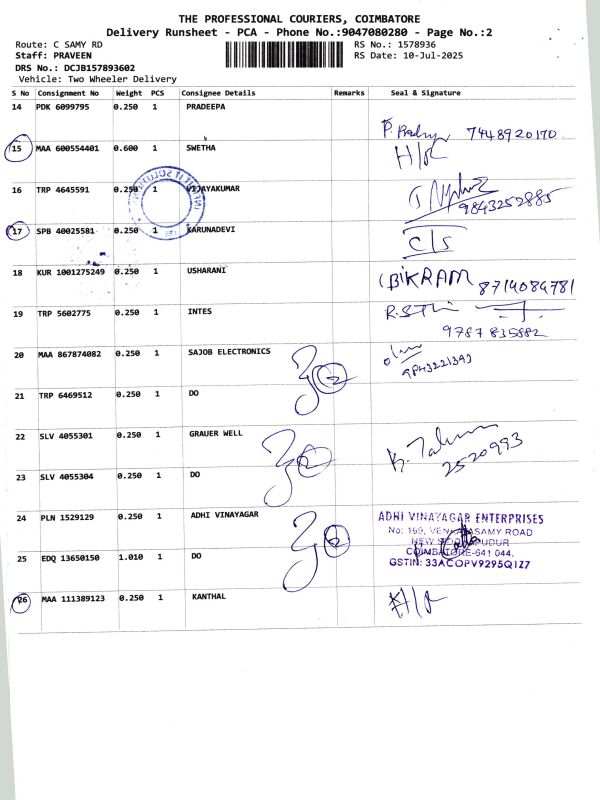 THE PROFESSIONAL COURIERS, COIMBATORE
Delivery Runsheet - PCA - Phone No.:9047080280 - Page No.:2
Route: C SAMY RD RS No.: 1578936
Staff: PRAVEEN RS Date: 10-Jul-2025
DRS No.: DCJB157893602
Vehicle: Two Wheeler Delivery
S No Consignment No Weight PCS Consignee Details Remarks Seal & Signature
14 PDK 6099795 0.250 1 PRADEEPA
7448920170
15 MAA 600554401 0.600 1 SWETHA H/R
16 TRP 4645591 0.250 1 VIJAYAKUMAR
9843252885
17 SPB 40025581 0.250 1 KARUNADEVI C/S
18 KUR 1001275249 0.250 1 USHARANI BIKRAM 8714084781
19 TRP 5602775 0.250 1 INTES
9787835882
20 MAA 867874082 0.250 1 SAJOB ELECTRONICS
9843221393
21 TRP 6469512 0.250 1 DO
22 SLV 4055301 0.250 1 GRAUER WELL
2520993
23 SLV 4055304 0.250 1 DO
24 PLN 1529129 0.250 1 ADHI VINAYAGAR ADHI VINAYAGAR ENTERPRISES
No: 199, VENKATASAMY ROAD
NEW SIDDHAPUDUR
COIMBATORE-641 044.
25 EDQ 13650150 1.010 1 DO GSTIN: 33ACOPV9295Q1Z7
26 MAA 111389123 0.250 1 KANTHAL H/R